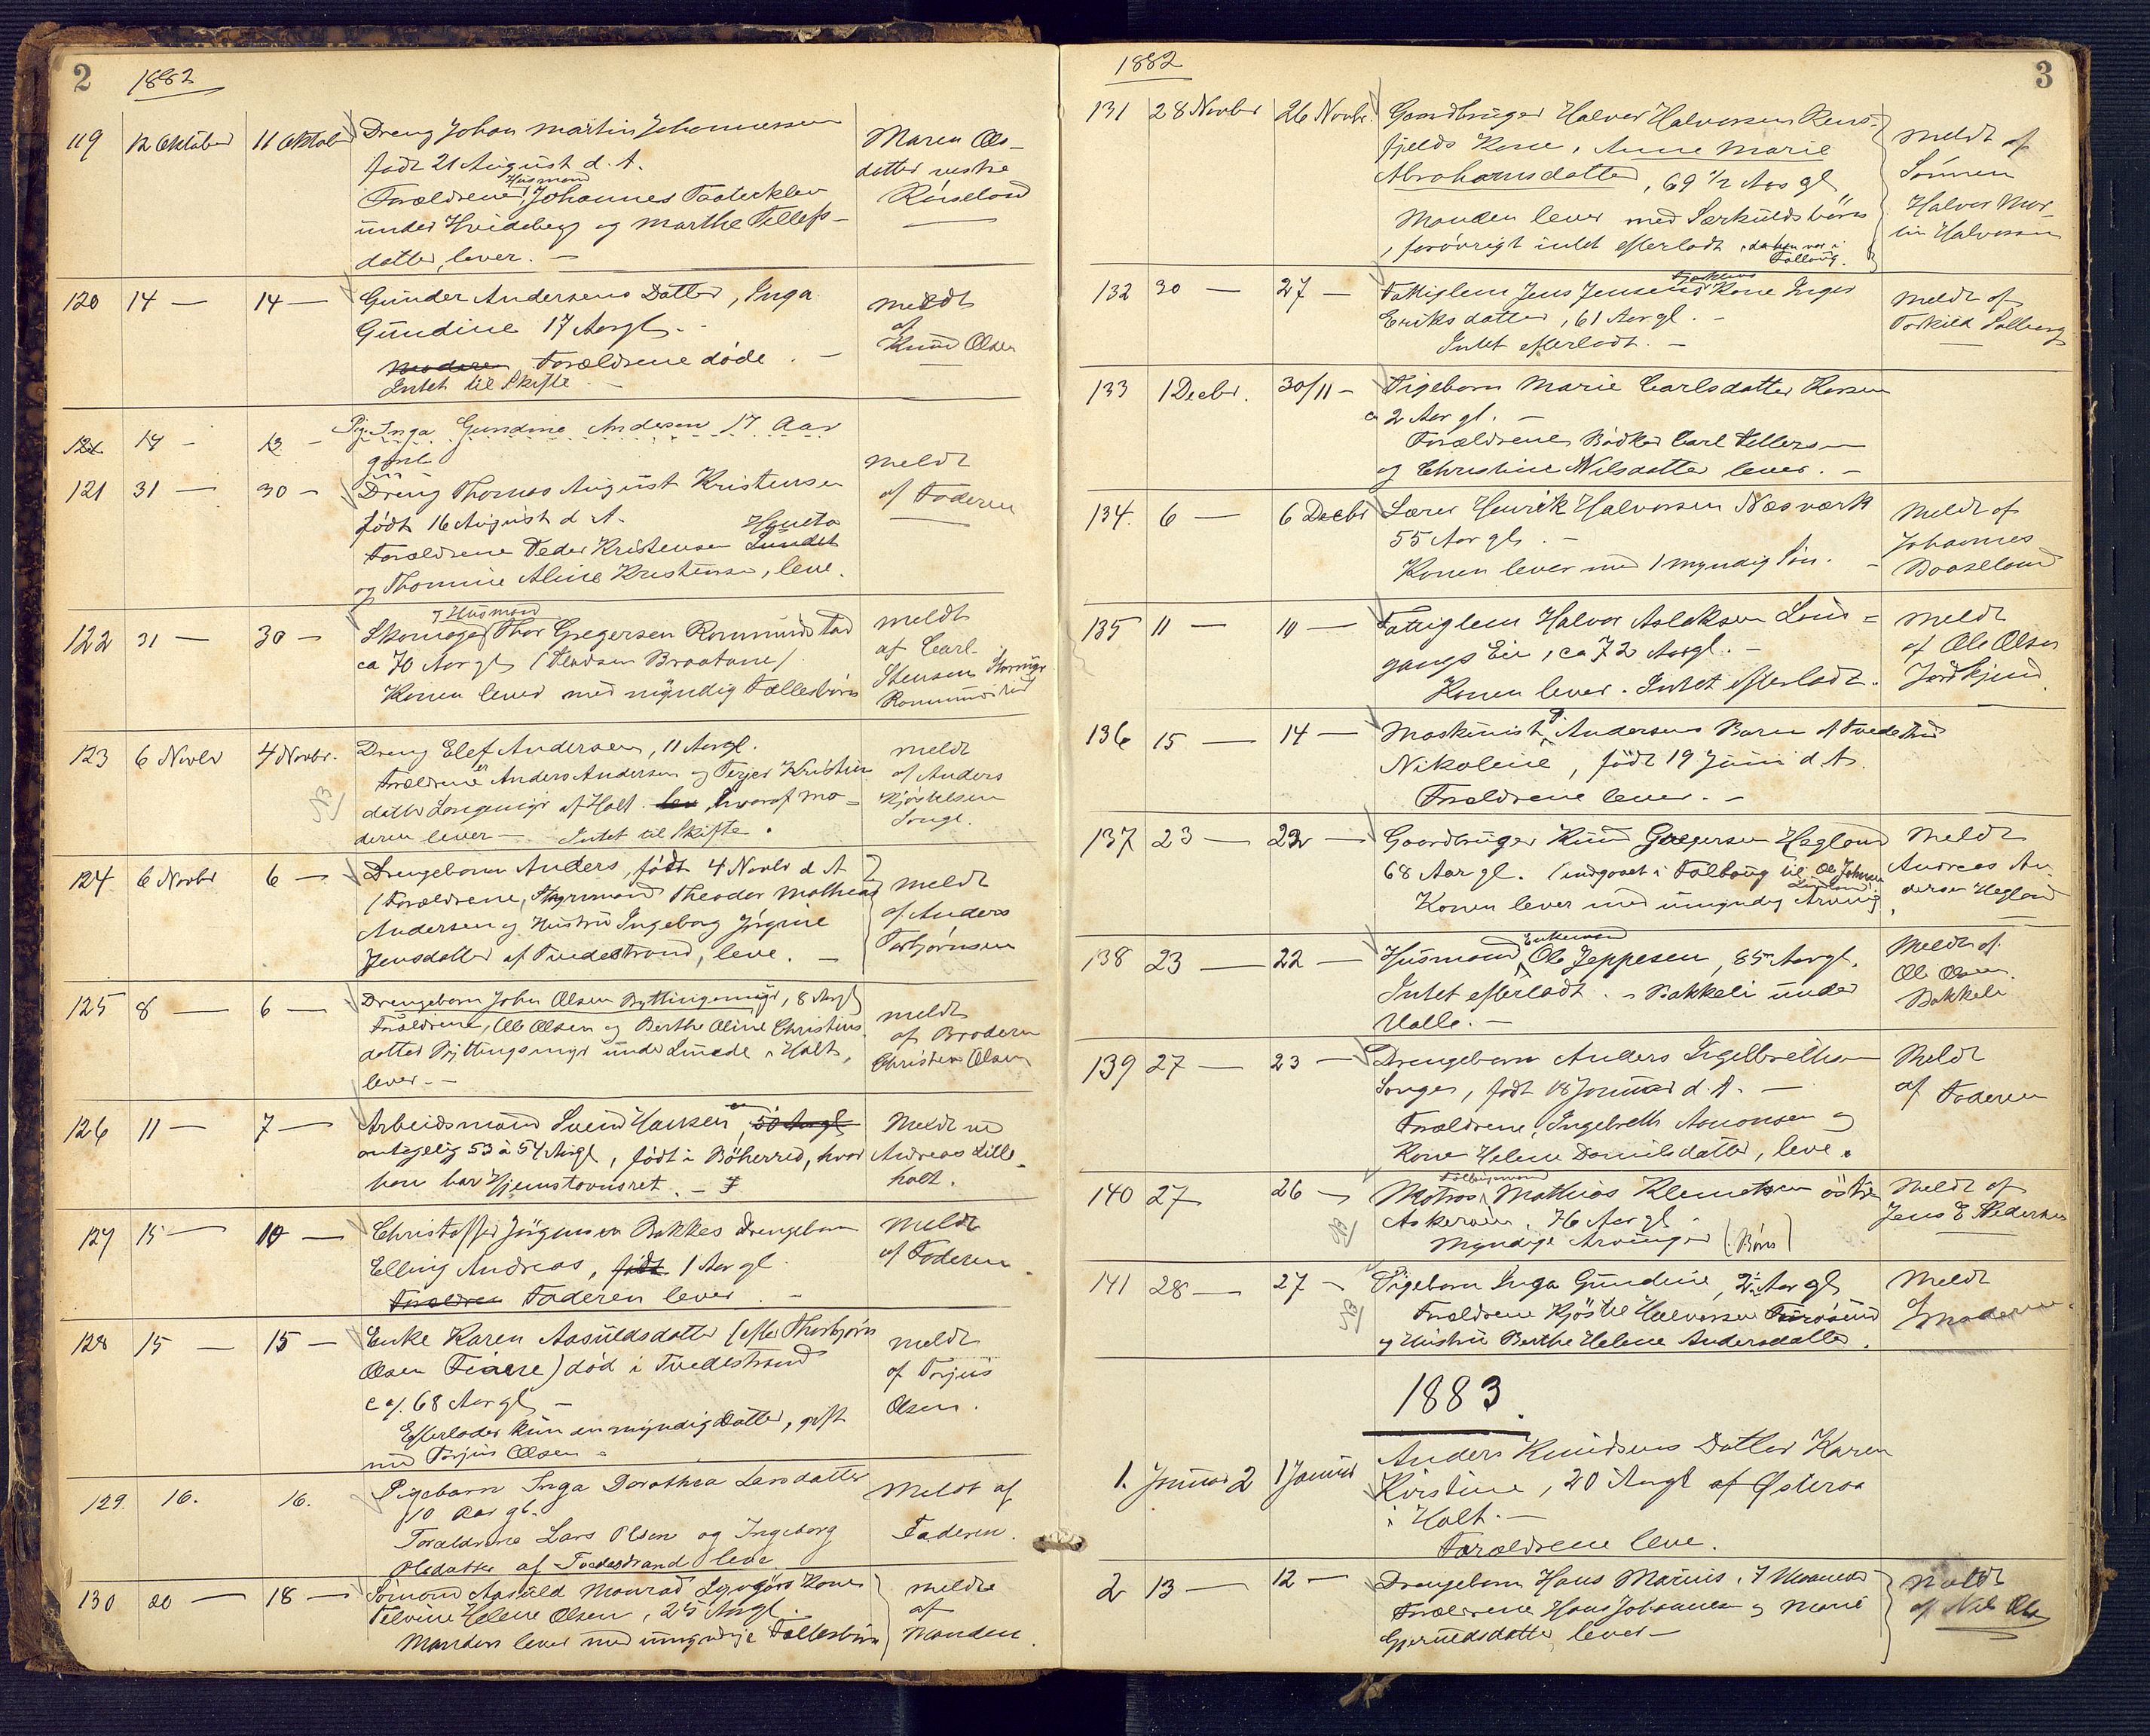 2 1882
119 12 Oktober 11 Oktober Dreng Johan Martin Johannessen Maren Ols-
født 21 August d. A. datter vestre
Husmand
Forældrene, Johannes Røiseland
under Hvideberg og Marthe Tellefs-
datter, lever. —
120 14 — 14 — Gunder Andersens Datter, Inga meldt
Gundine 17 Aar gl. — af
Moderen Forældrene døde. — Knud Olsen
Intet til Skifte. —
121 14 - 13 - Pige Inga Gundine Andersen 17 Aar
gml
121 31 — 30 - Dreng Thomas August Kristensen meldt
født 16 August d A. af Faderen
Forældrene Peder Kristensen Lundet
og Thomine Aline Kristensen, leve.
122 31 — 30 - Skomager Thor Gregersen Rommundstad meldt
og Husmand
ca 70 Aar gl. (Pladsen Braatane) af Carl
Konen lever med myndig Fællesbørn Stensen
Rommundstad
123 6 Novbr 4 Novbr. Dreng Elef Andersen, 11 Aar gl. meldt
Forældrene er Anders Andersen og Kristin af Anders
NB datter Longemyr af Holt. hvoraf Mo- Kjøstelsen
deren lever — Intet til Skifte. Songe.
124 6 Novbr 6 — Drengebarn Anders, født 4 Novbr d A meldt
(Forældrene, Styrmand Theodor Mathias af Anders
Andersen og Hustru Ingeborg Jørgine Torbjørnsen
Jensdatter af Tvedestrand, leve. —
125 8 — 6 — Drengebarn John Olsen Byttingsmyr, 8 Aar gl meldt
Forældrene, Ole Olsen og Berthe Oline Christens af Broderen
datter Byttingsmyr under i Holt, Christen Olsen
lever. —
126 11 — 7 — Arbeidsmand Svend Hansen, 50 Aar gl Meldt ved
antagelig 53 à 54 Aar gl, født i Bøherred, hvor Andreas Lille-
han har Hjemstavnsret. — holt.
127 15 — 10 — Christoffer Jørgensen Bakkes Drengebarn Meldt
Elling Andreas, født 1 Aar gl af Faderen.
Forældre Faderen lever. —
128 15 — 15 — Enke Karen Aasuldsdatter (efter Thorbjørn meldt
Olsen Fiære) død i Tvedestrand af Torjus
ca. 68 Aar gl — Olsen.
Efterlader kun en myndig Datter, gift
med Torjus Olsen —
129. 16. 16. Pigebarn Inga Dorothea Larsdatter Meldt af
10 Aar gl. Faderen.
Forældrene Lars Olsen og Ingeborg
Olsdatter af Tvedestrand leve
130 20 — 18 — Sømand Aasuld Monrad Kone meldt
Helene Olsen, 25 Aar gl. af
Manden lever med umyndige Fællesbørn Manden.
1882 3
131 28 Novbr 26 Novbr. Gaardbruger Halvor Halvorsen Rens- Meldt af
fjelds Kone, Anne Marie Sønnen
Abrahamsdatter, 69 1/2 Aar gl Halvor Mar-
Manden lever med Særkuldsbørn tin Halvorsen
, forøvrigt intet efterladt, da han var i
Follaug.
132 30 — 27 — Fattiglem Jens Jensens Kone Inger Meldt af
Eriksdatter, 61 Aar gl. — Torkild Solberg
Intet efterladt. —
133 1 Decbr. 30/11 - Pigebarn Marie Carlsdatter
ca 2 Aar gl. —
Forældrene Bødker Carl Tellefsen
og Christine Nilsdatter lever. —
134. 6 — 6 Decbr Lærer Henrik Halvorsen Næsværk Meldt af
55 Aar gl. — Johannes
Konen lever med 1 myndig Søn. — Baaseland
135 11 — 10 — Fattiglem Halvor Aslaksen Lund= Meldt
gangs Eie, ca 72 Aar gl. — af Ole Olsen
Konen lever. Intet efterladt.
136 15 — 14 — Maskinist Andersens Barn af Tvedestrand
Nikoline, født 19 Juni d A.
Forældrene lever. —
137 23 — 22 — Gaardbruger Knud Gregersen Hegland Meldt
68 Aar gl. (indgaaet i Follaug til Ole Johnsen Andreas An-
Konen lever med umyndig Arving. dersen Hegland
138 23 — 22 — Husmand, Ole Jeppesen, 85 Aar gl. Meldt af
Enkemand
Intet efterladt. — Bakkeli under Ole Olsen.
Valle. — Bakkeli
139 27 — 23 — Drengebarn Anders Ingelbrethsen Meldt
Songe, født 18 Januar d. A. — af Faderen
Forældrene, Ingebreth Aanonsen og
Kone Helene Danielsdatter, leve.
140 27 26 - Matros Mathias Klemetsen østre Meldt af
Follaugsmand
NB Askerøen, 76 Aar gl. Jens E Pedersen
Myndige Arvinger (Børn)
141 28 — 27 - Pigebarn Inga Gundine, 2 Aar gl Meldt
NB Forældrene Kjøstel Halvorsen Furøsund af Moderen.
og Hustru Berthe Helene Andersdatter.
1883.
1. Januar 2 1 Januar Anders Knudsens Datter Karen
Kirstine, 20 Aar gl af Østeraa
i Holt. —
Forældrene leve.
2 13 — 12 — Drengebarn Hans Marius, 7 Maaneder Meldt
Forældrene Hans Johansen og Marie af Nils Olsen
Gjeruldsdatter lever —